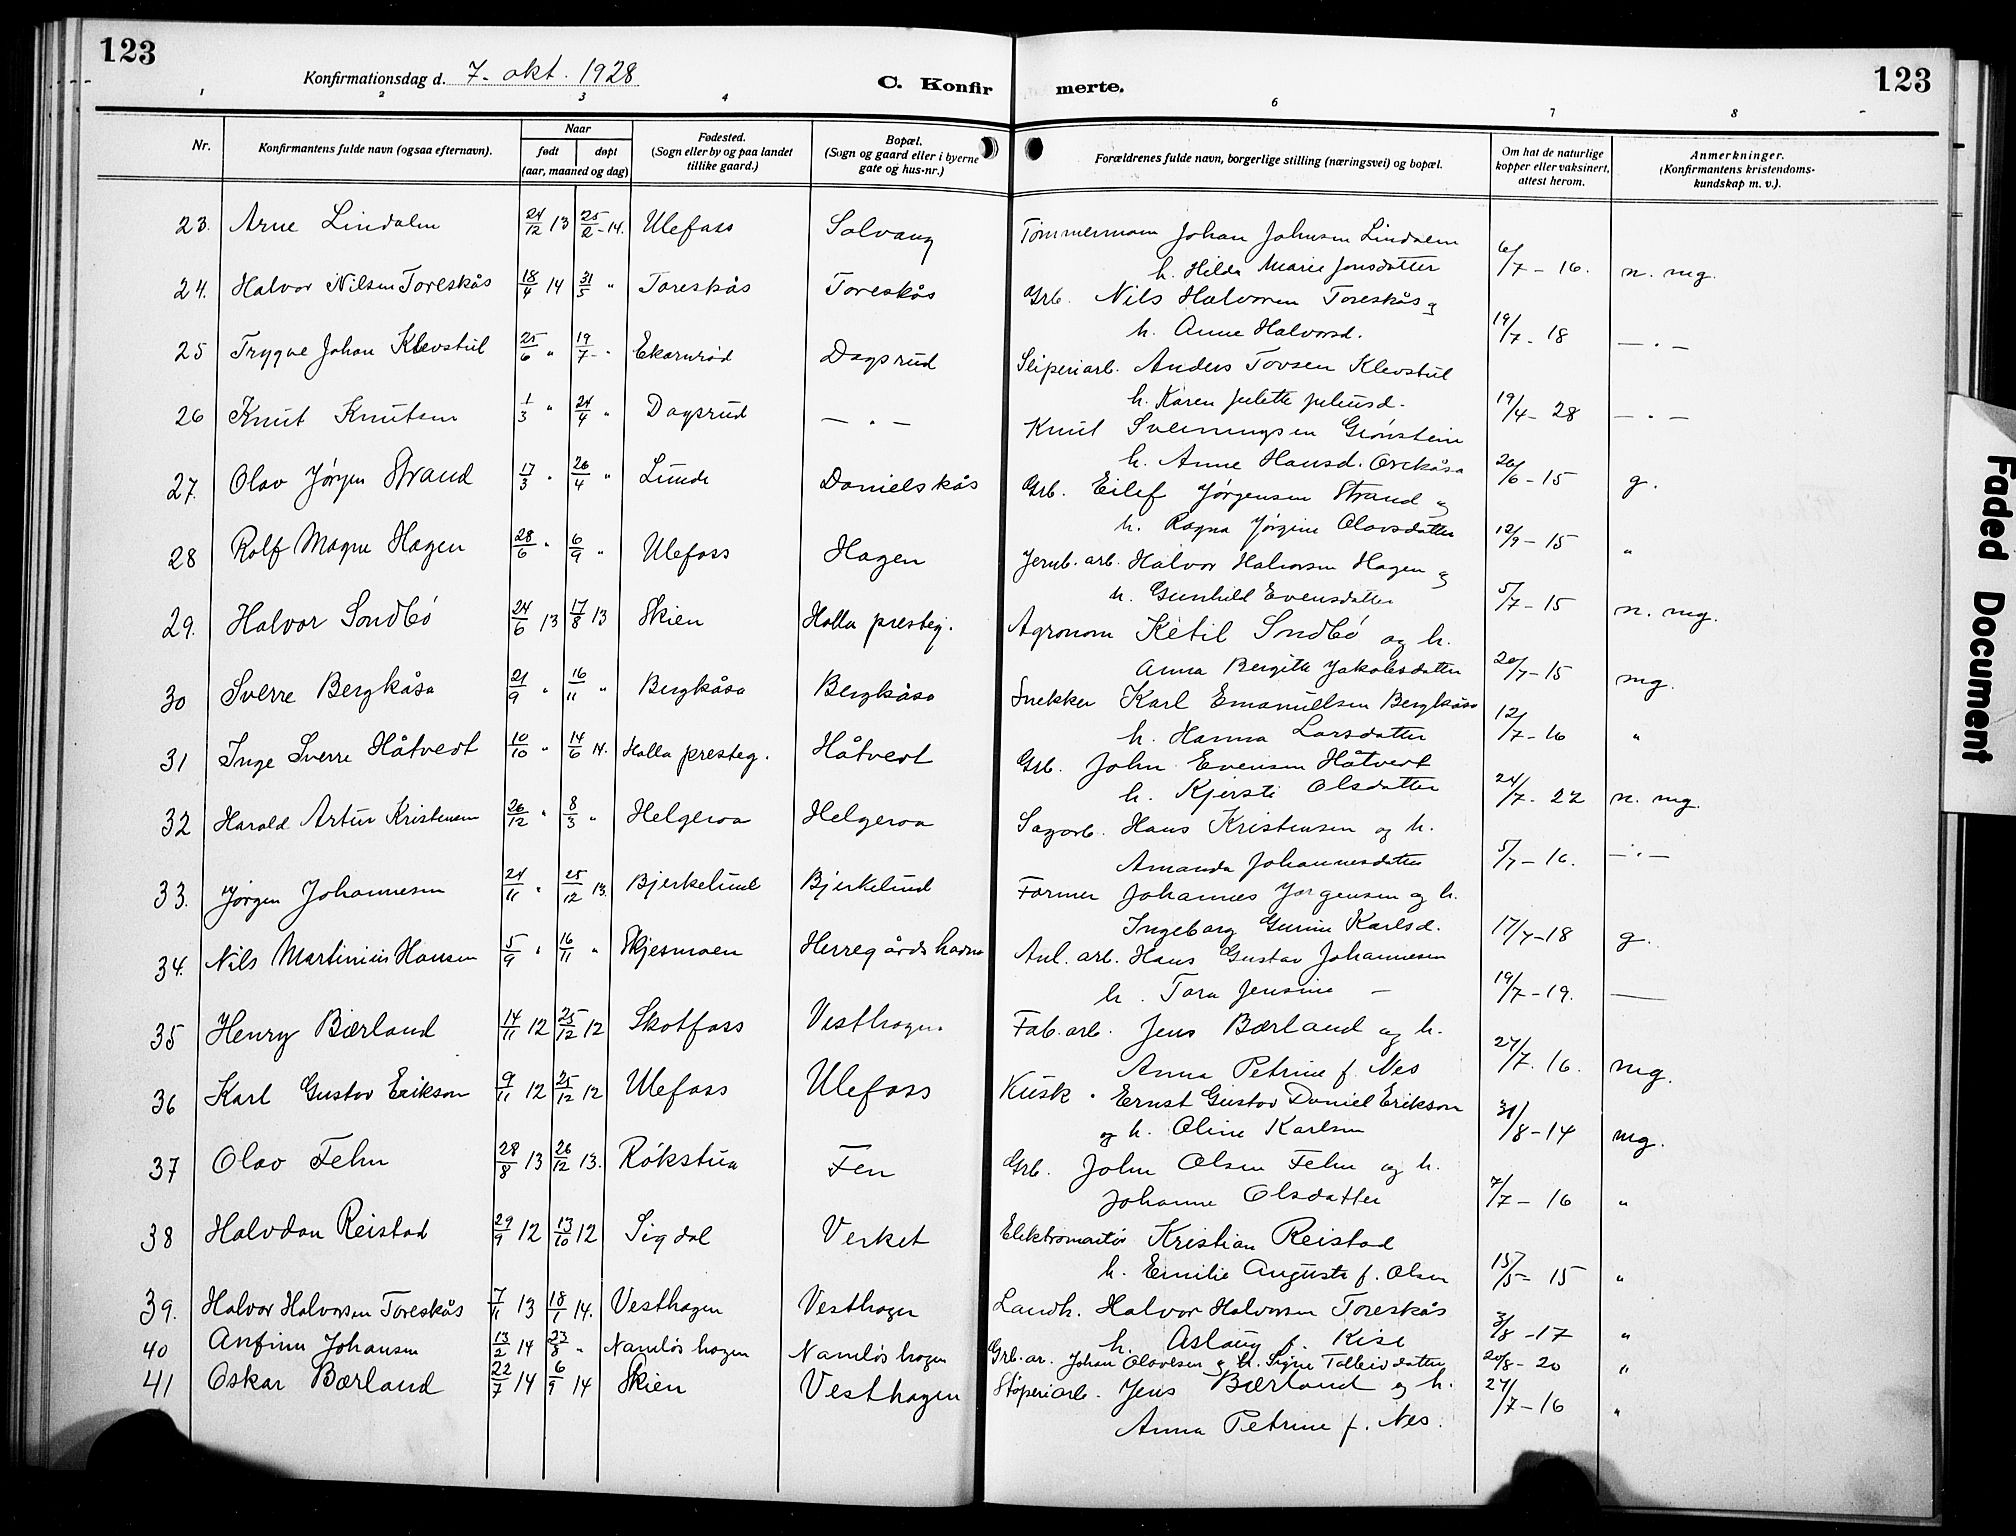 123
Konfirmationsdag d. 7. okt. 1928
C. Konfir merte.
123
1 2 3 4 6 7 8
Nr.
Konfirmantens fulde navn (ogsaa efternavn).
Naar
født døpt
(aar, maaned og dag)
Fødested.
(Sogn eller by og paa landet
tillike gaard.)
Bopæl.
(Sogn og gaard eller i byerne
gate og hus-nr.)
Forældrenes fulde navn, borgerlige stilling (næringsvei) og bopæl.
Om hat de naturlige
kopper eller vaksinert,
attest herom.
Anmerkninger.
(Konfirmantens kristendoms-
kundskap m. v.).
23. Arne Lindalen 24/12 13 25/2 - 14. Ulefoss Solvang Tømmermann Johan Johnsen Lindalen
h. Hilda Marie Jonsdatter 6/7 - 16. n. mg.
24. Halvor Nilsen Toreskås 18/4 14 31/5 " Toreskås Toreskås Grb. Nils Halvorsen Toreskås og
h. Anne Halvorsd. 19/7 - 18 — " —
25 Trygve Johan Klevstul 25/6 " 19/7 - " Ekornrød Dagsrud Sliperiarb. Anders Tovsen Klevstul
h. Karen Julette Juliusd. 19/4 - 28 — " —
26 Knut Knutsen 1/3 " 24/4 " Dagsrud — " — Knut Sveinungsen Grønstein
h. Anne Hansd. Orekåsa 26/6 - 15 g.
27. Olav Jørgen Strand 17/3 " 26/4 " Lunde Danielskås Grb. Eilef Jørgensen Strand og
h. Ragna Jørgine Olavsdatter 12/9 - 15 "
28 Rolf Magne Hagen 28/6 " 6/9 " Ulefoss Hagen Jernb. arb. Halvor Halvorsen Hagen og
h. Gunhild Evensdatter 5/7 - 15 n. mg.
29. Halvor Sondbø 24/6 13 17/8 13 Skien Holla presteg. Agronom Ketil Sndbø og h.
Anna Bergith Jakobsdatter 20/7 - 15 mg.
30 Sverre Bergkåsa 21/9 " 16/11 " Bergkåsa Bergkåsa Snekker Karl Emanuelsen Bergkåsa
h. Hanna Larsdatter 12/7 - 16 "
31 Inge Sverre Håtvedt 10/10 " 14/6 14. Holla presteg. Håtvedt Grb. John Evensen Håtvedt
h. Kjersti Olsdatter 24/7 - 22 n. mg.
32 Harald Artur Kristensen 26/12 " 8/3 " Helgeroa Helgeroa Sagarb. Hans Kristensen og h.
Amanda Johannesdatter 5/7 - 16. — " —
33. Jørgen Johannesen 24/11 " 25/12 13. Bjerkelund Bjerkelund Former Johannes Jørgensen og h.
Ingeborg Gurine Karlsd. 17/7 - 18 g.
34. Nils Martinius Hansen 5/9 " 16/11 " Skjesmoen Herregårdshavna Anl. arb. Hans Gustav Johannesen
h. Tora Jensine — 19/7 - 19. —
35 Henry Bærland 14/11 12 25/12 12 Skotfoss Vesthagen Fab. arb. Jens Bærland og h.
Anna Petrine f. Nes 27/7. 16. mg.
36 Karl Gustav Erikson 9/11 12 25/12 12 Ulefoss Ulefoss Kusk. Ernst Gustav Daniel Erikson
og h. Oline Karlsen 31/8 - 14 mg.
37 Olav Fehn 28/8 13 26/12 13. Rökstua Fen Grb. John Olsen Fehn og h.
Johanne Olsdatter 7/7 - 16 "
38 Halvdan Reistad 29/9 12 13/10 12 Sigdal Verket Elektromontør Kristian Reistad
h. Emilie Augusta f. Olsen 15/5 - 15 "
39. Halvor Halvorsen Toreskås 7/11 13 18/1 14. Vesthagen Vesthagen Landh. Halvor Halvorsen Toreskås
h. Aslaug f. Kise 3/8 - 17 "
40 Anfinn Johansen 13/2 14 23/8 " Namløshagen Namløshagen Grb. ar. Johan Olavesen og h. Signe Tolleivdatter 20/8 - 20 "
41 Oskar Bærland 22/7 14 6/9 14 Skien Vesthagen Støperiarb. Jens Bærland og h.
Anna Petrine f. Nes. 27/7 - 16 "
Faded Document